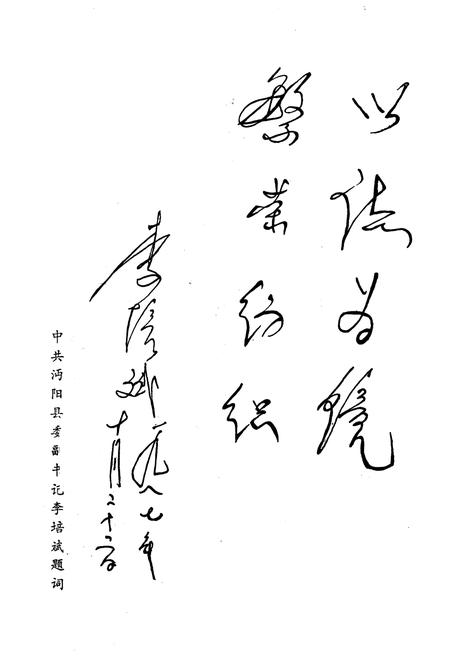 以誌为镜
繁荣纺织
李培斌 一九八七年
十月二十二日
中共沔阳县委副书记李培斌题词